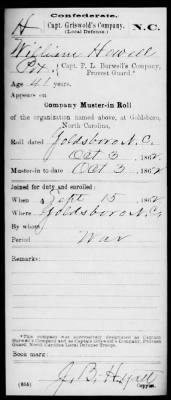 Confederate.
H Capt. Griswold's Company, N.C.
(Local Defense.)
William Hewell
Pvt., Capt. P. L. Burwell's Company,
Provost Guard.*
Age 41 years.
Appears on
Company Muster-in Roll
of the organization named above, at Goldsboro,
North Carolina,
Roll dated Goldsboro N.C.
Oct 3, 1862
Muster-in to date Oct 3, 1862
Joined for duty and enrolled:
When Sept 15, 1862
Where Goldsboro N.C.
By whom
Period War
Remarks:
*This company was successively designated as Captain
Burwell's Company and as Captain Griswold's Company, Provost
Guard, North Carolina Local Defense Troops.
Book mark:
J. B.
(656) Copyist.